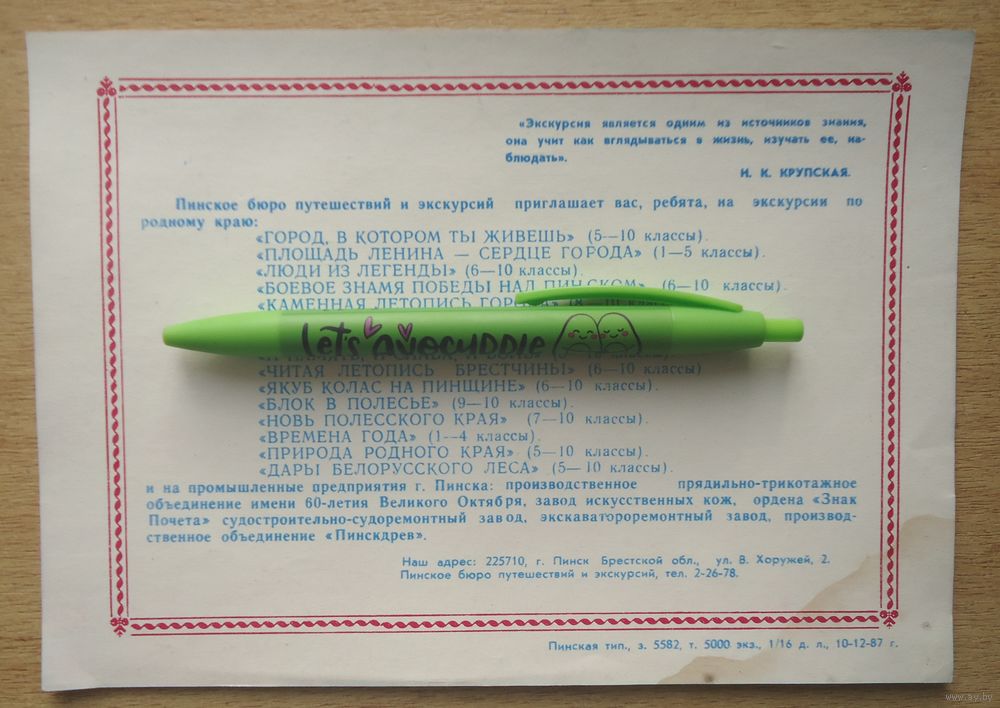 «Экскурсия является одним из источников знания,
она учит как вглядываться в жизнь, изучать ее, на-
блюдать».
Н. К. КРУПСКАЯ.
Пинское бюро путешествий и экскурсий приглашает вас, ребята, на экскурсии по
родному краю:
«ГОРОД, В КОТОРОМ ТЫ ЖИВЕШЬ» (5—10 классы).
«ПЛОЩАДЬ ЛЕНИНА — СЕРДЦЕ ГОРОДА» (1—5 классы).
«ЛЮДИ ИЗ ЛЕГЕНДЫ» (6—10 классы).
«БОЕВОЕ ЗНАМЯ ПОБЕДЫ НАД ПИНСКОМ» (6—10 классы).
«КАМЕННАЯ ЛЕТОПИСЬ ГОРОДА» (8—10
Let's avocuddle
«ЧИТАЯ ЛЕТОПИСЬ БРЕСТЧИНЫ» (6—10 классы)
«ЯКУБ КОЛАС НА ПИНЩИНЕ» (6—10 классы).
«БЛОК В ПОЛЕСЬЕ» (9—10 классы).
«НОВЬ ПОЛЕССКОГО КРАЯ» (7—10 классы).
«ВРЕМЕНА ГОДА» (1—4 классы).
«ПРИРОДА РОДНОГО КРАЯ» (5—10 классы).
«ДАРЫ БЕЛОРУССКОГО ЛЕСА» (5—10 классы).
и на промышленные предприятия г. Пинска: производственное прядильно-трикотажное
объединение имени 60-летия Великого Октября, завод искусственных кож, ордена «Знак
Почета» судостроительно-судоремонтный завод, экскаватороремонтный завод, производ-
ственное объединение «Пинскдрев».
Наш адрес: 225710, г. Пинск Брестской обл., ул. В. Хоружей, 2.
Пинское бюро путешествий и экскурсий, тел. 2-26-78.
Пинская тип., з. 5582, т. 5000 экз., 1/16 д. л., 10-12-87 г.
www.ay.by